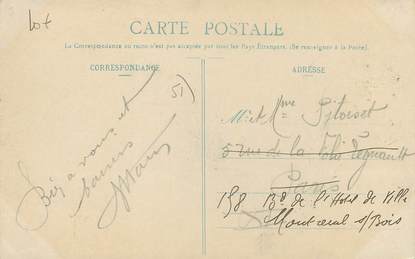 Lot
CARTE POSTALE
La Correspondance au recto n'est pas acceptée par tous les Pays Étrangers. (Se renseigner à la Poste).
CORRESPONDANCE
ADRESSE
51)
à vous et
M. et Mme
5 rue de la Folie Regnault
Paris
158 Bd de l'Hotel de Ville
Montreuil s/Bois